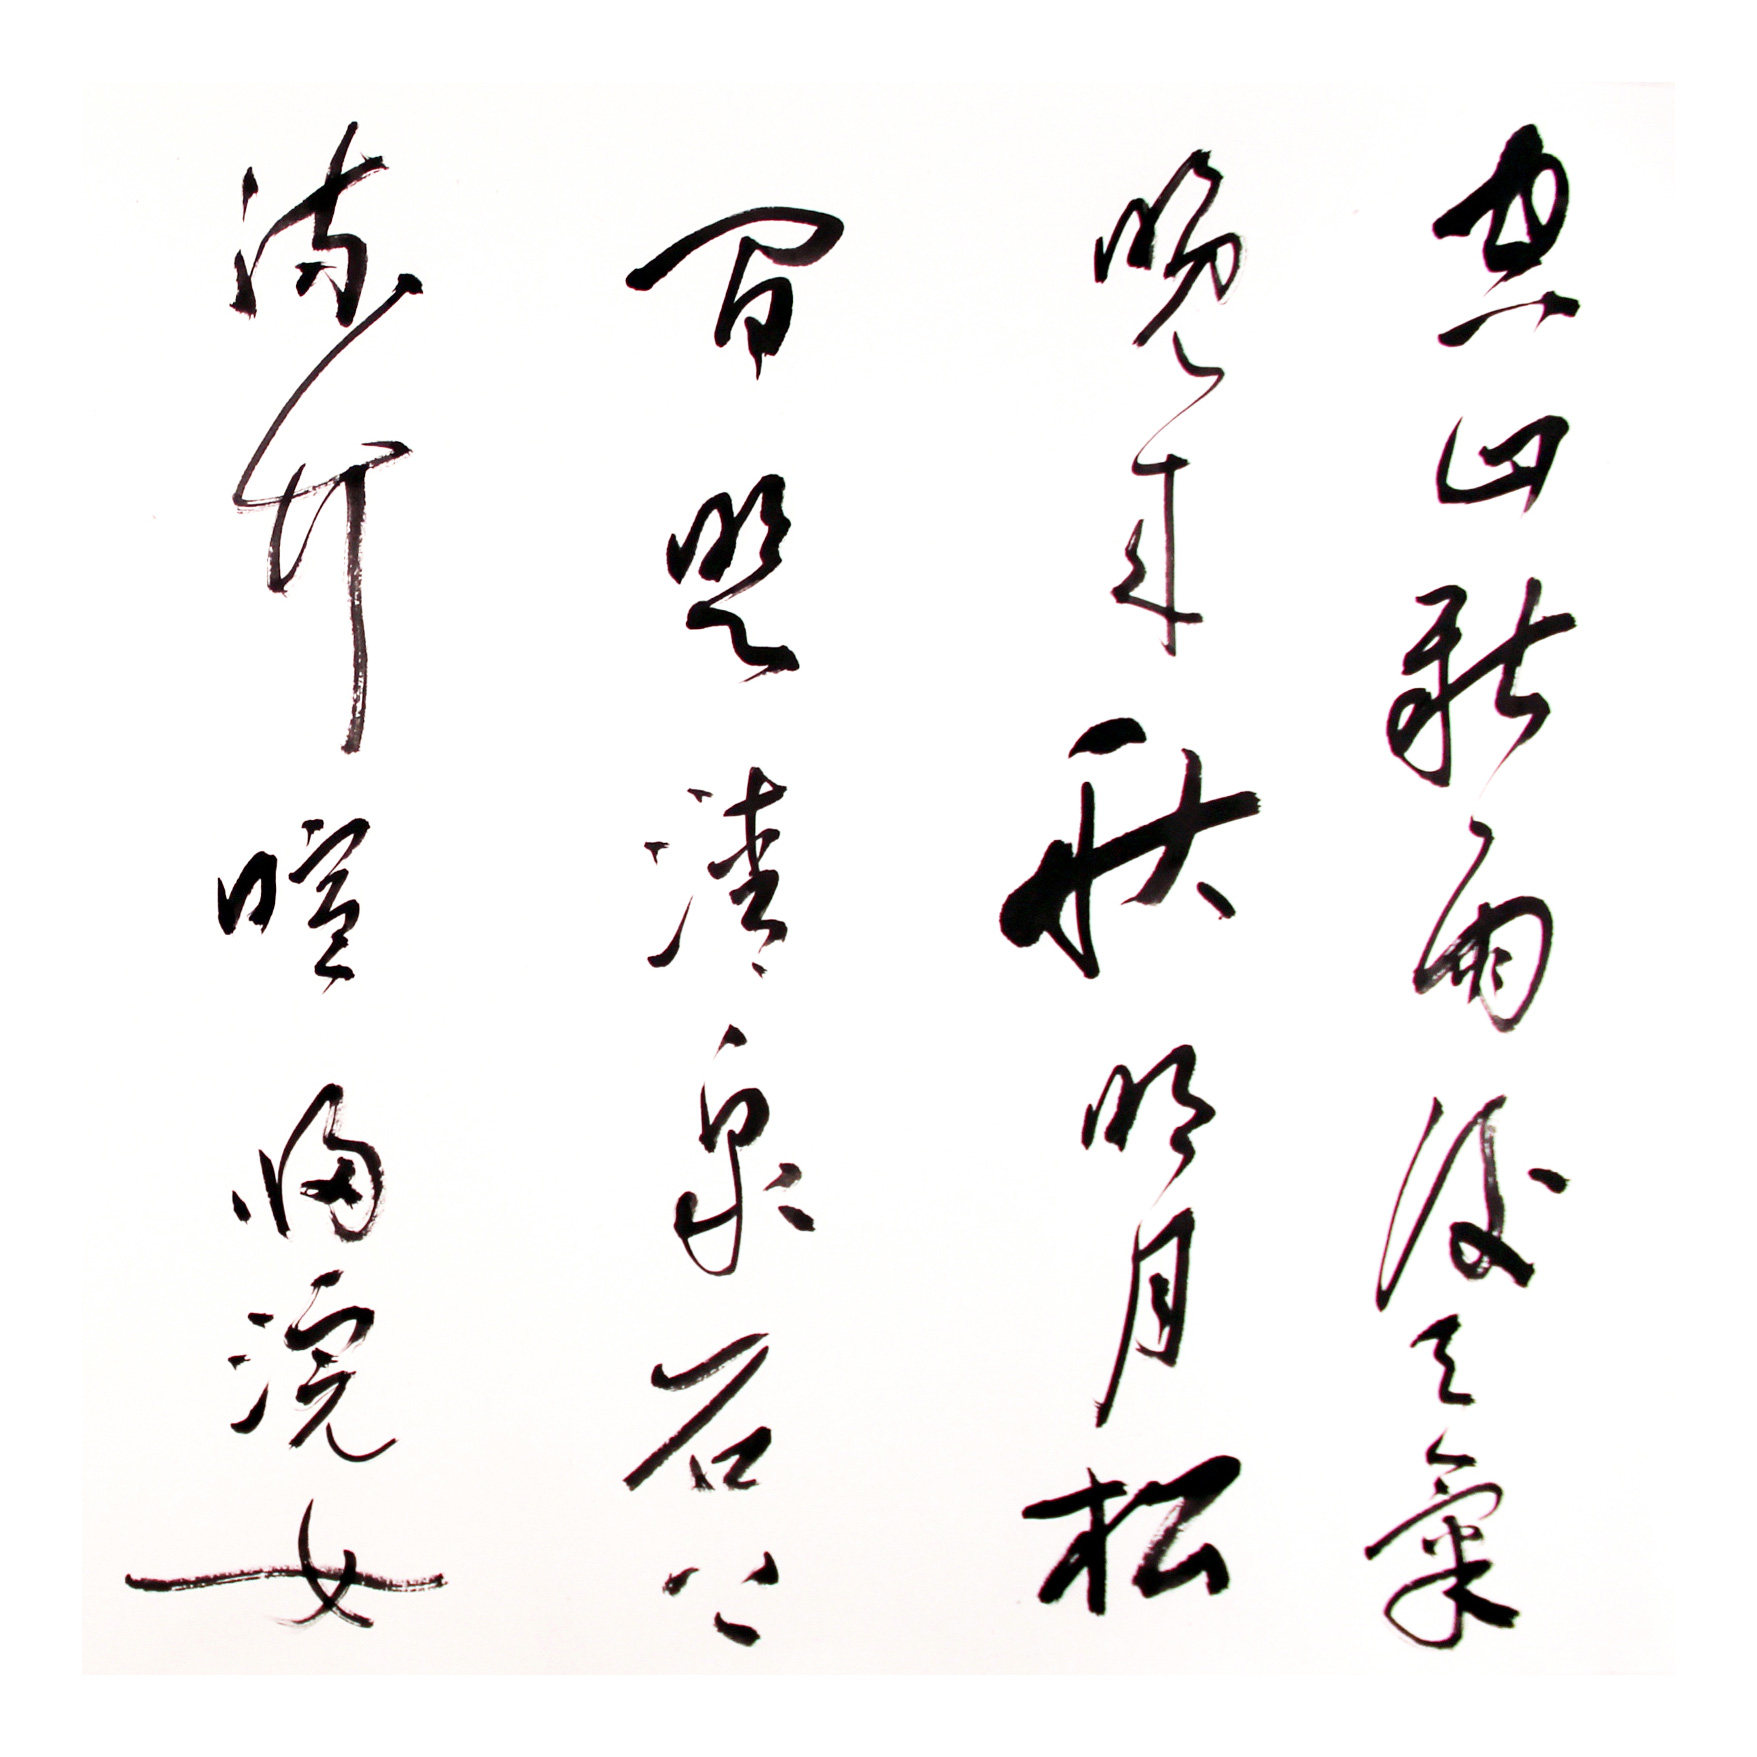 空山新雨後天氣
晚來秋明月松
間照清泉石上
流竹喧歸浣女